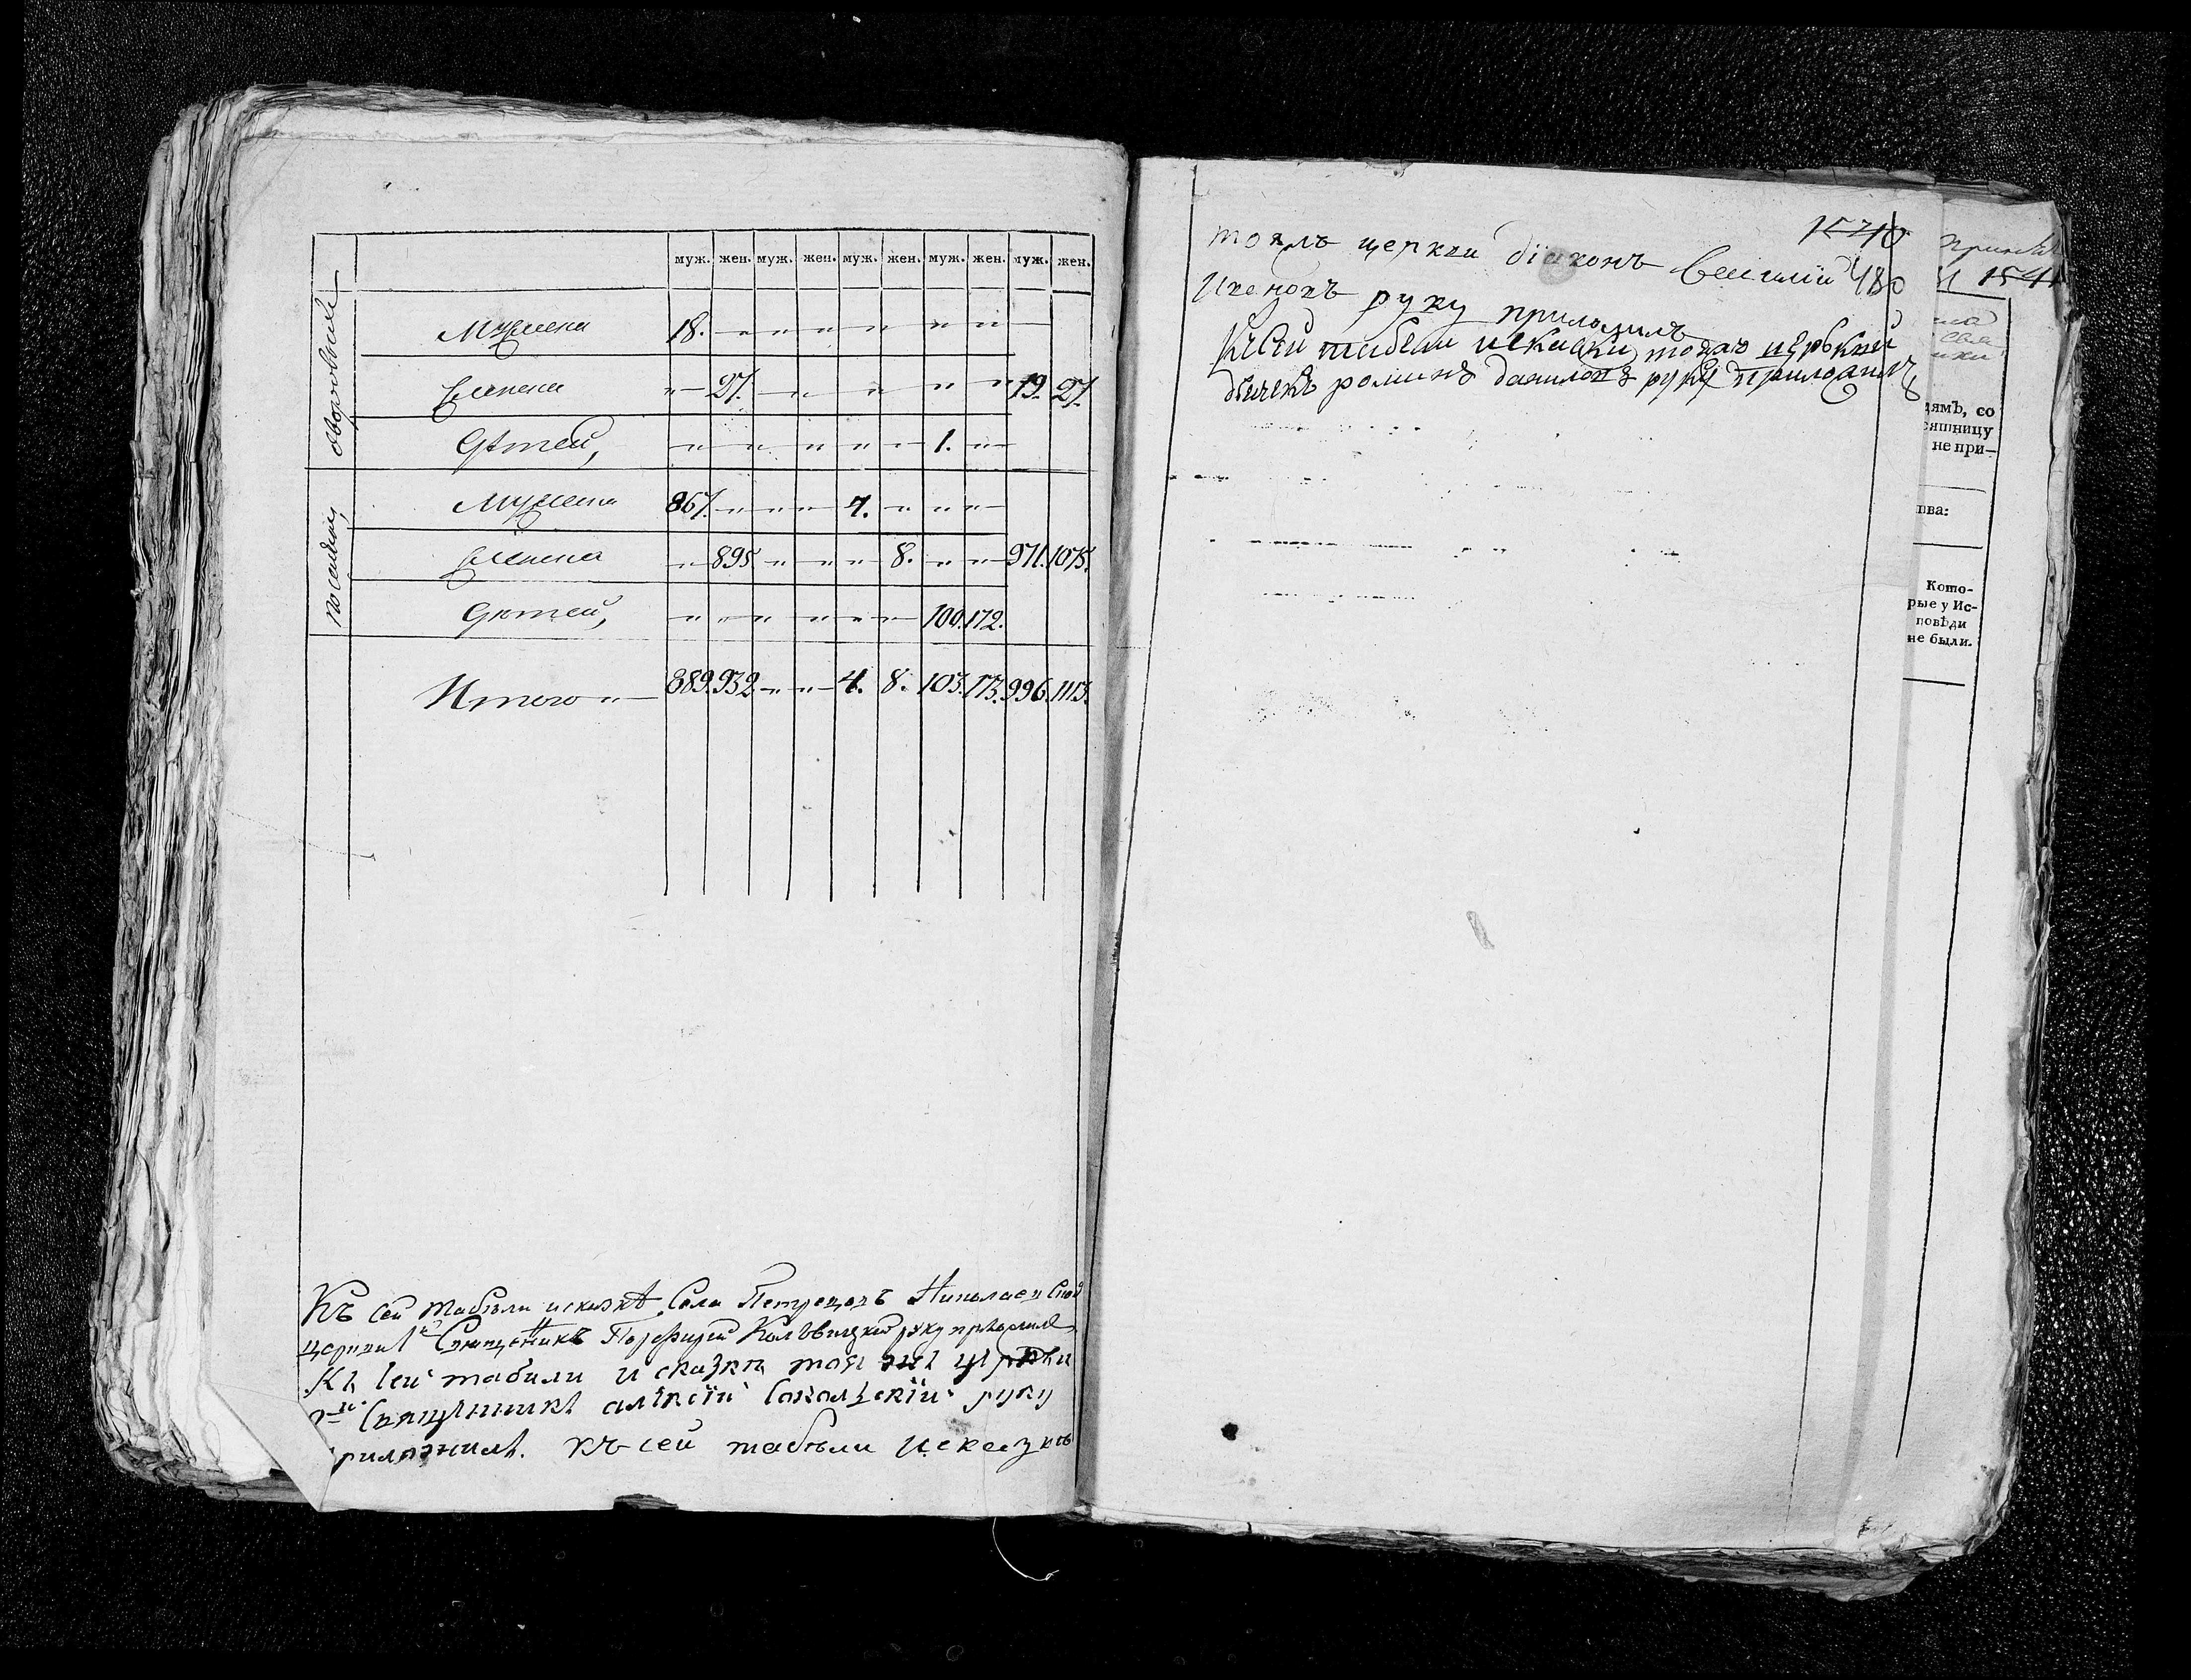 муж. жен. муж. жен. муж. жен. муж. жен. муж. жен.
дворовыхъ
Мужеска 18. — " — " — " — " — " — " — " —
женска " — 27. — " — " — " — " — " 19. 27.
Дѣтей, — " — " — " — " — " — 1. — " —
поселянъ
Мужеска 867. — " — " — " — 4. — " — " — " —
женска — " — 895 — " — " — " — 8. — " — " — 971. 1075.
Дѣтей, — " — " — " — " — " — " — 100. 172.
Итого " — 889. 932. — " — " — 4. 8. 103. 173. 996. 1113.
Къ сей табѣли и сказкѣ Села Николаевской
церкви Священникъ Порфирий руку приложилъ
Къ сей табили и сказки тоя церкви
Священникъ алексїй Сокольскїй руку
приложилъ. къ сей табѣли и сказкѣ
1540
тояжъ церкви дїаконъ Василий 480
руку приложилъ
Къ сей табели и скаски тояжъ церькви
дьячекъ романъ даниловъ руку приложилъ
1541
дямъ, со
сяшницу
не при-
шва:
Кото-
рые у Ис-
повѣди
не были.